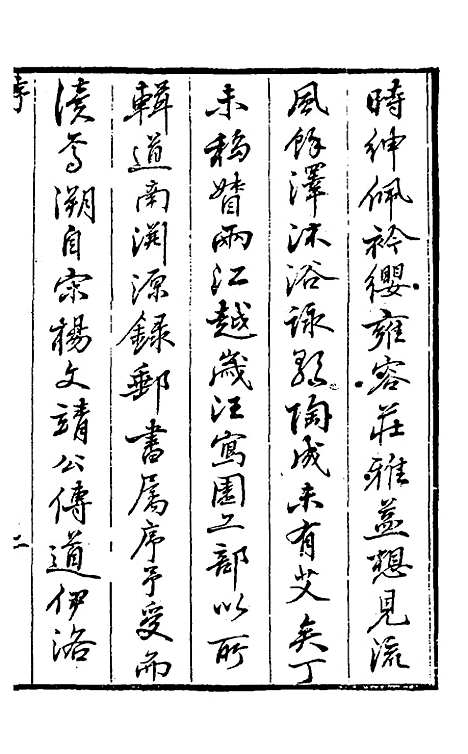 時紳佩衿纓雍容莊雅益想見流
風餘澤沐浴詠歌陶成未有艾矣丁
未稿督兩江越歲汪寫園工部以所
輯道南淵源錄郵書屬序予受而
讀焉溯自宋楊文靖公傳道伊洛
序
二